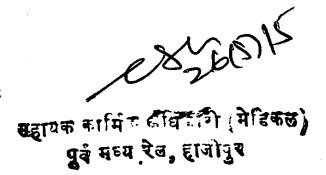 26/5/15
सहायक कार्मिक अधिकारी (मेडिकल)
पूर्व मध्य रेल, हाजीपुर